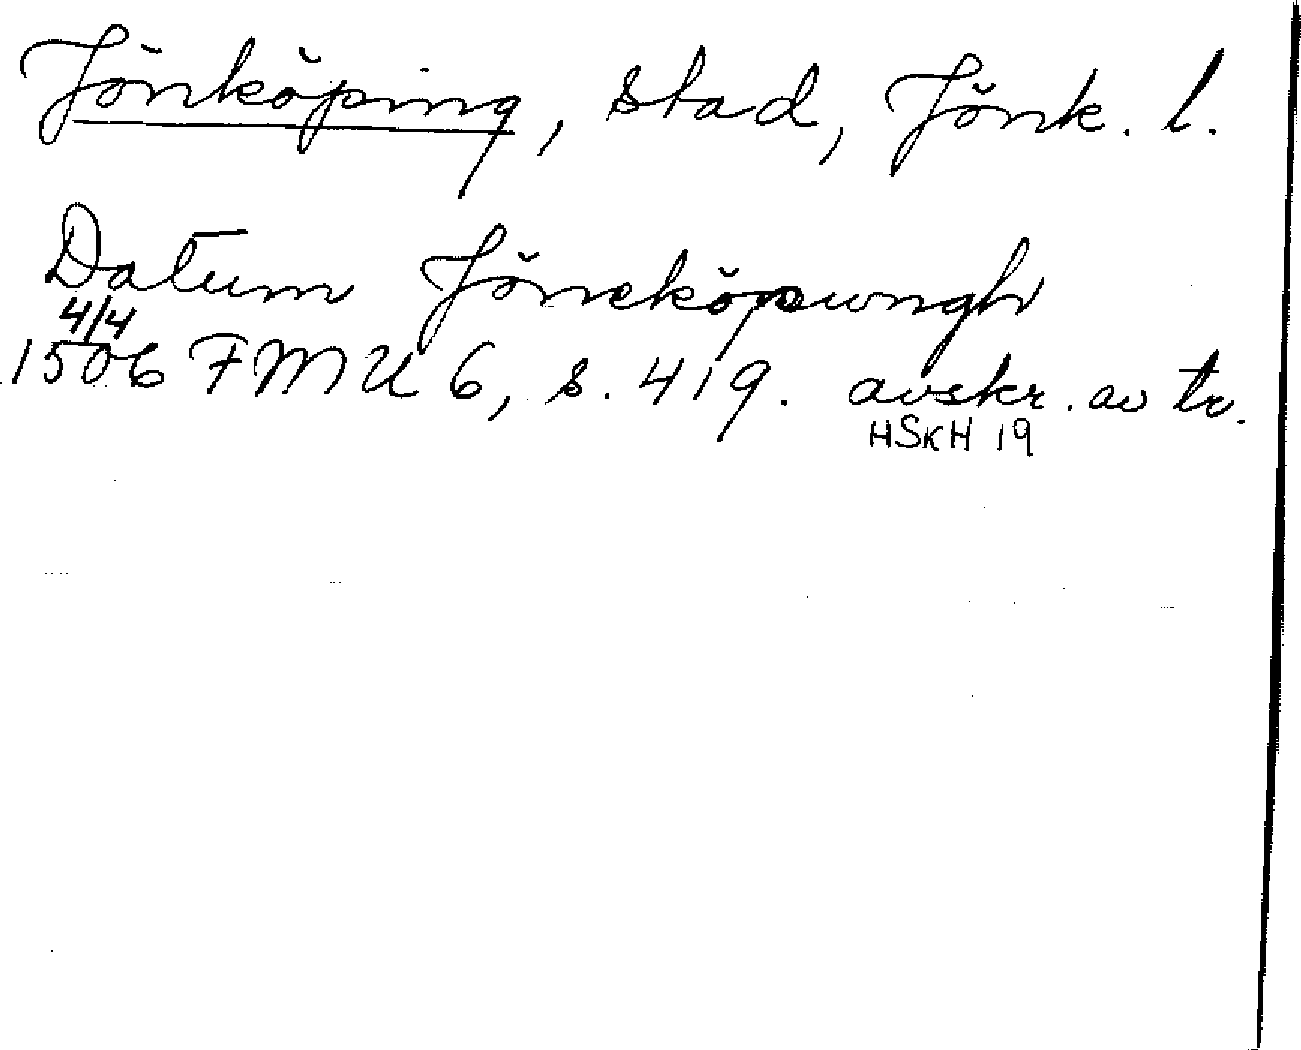 Jönköping, stad, Jönk. l.
Datum Jöneköpungh
4/4
1506 FMU 6, s. 419. avskr. av tr.
HSKH 19